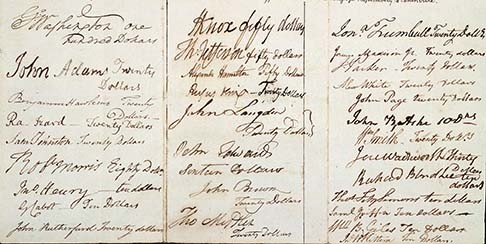 G Washington one
hundred Dollars
John Adams Twenty
Dollars
Benjamin Hawkins Twenty
Dollars
Ra. Izard — Twenty Dollars
Saml Johnston Twenty Dollars
Robt Morris Eighty Dollars
Jno Henry — ten dollars
G Cabot — Ten Dollars
John Rutherfurd Twenty dollars
Knox fifty dollars
Th: Jefferson fifty dollars
Alexander Hamilton Fifty Dollars
Rufus King — Twenty Dollars
John Langdon
Twenty Dollars
John Edwards
John Brown
Twenty Dollars
Twenty Dollars
Jona Trumbull Twenty Dolls
Js Madison Jr Twenty dollars
J Parker — Twenty Dollars
Alex White Twenty Dollars
John Page Twenty Dollars
John B Ashe 10 Drs
Wm Smith Twenty Drs
Jere Wadsworth Thirty
Dollars
Richard Bland Lee ten
dollars
Thos Fitzsimons ten dollars
Ten dollars
Wm B. Giles Ten Dollars
Ten Dollars